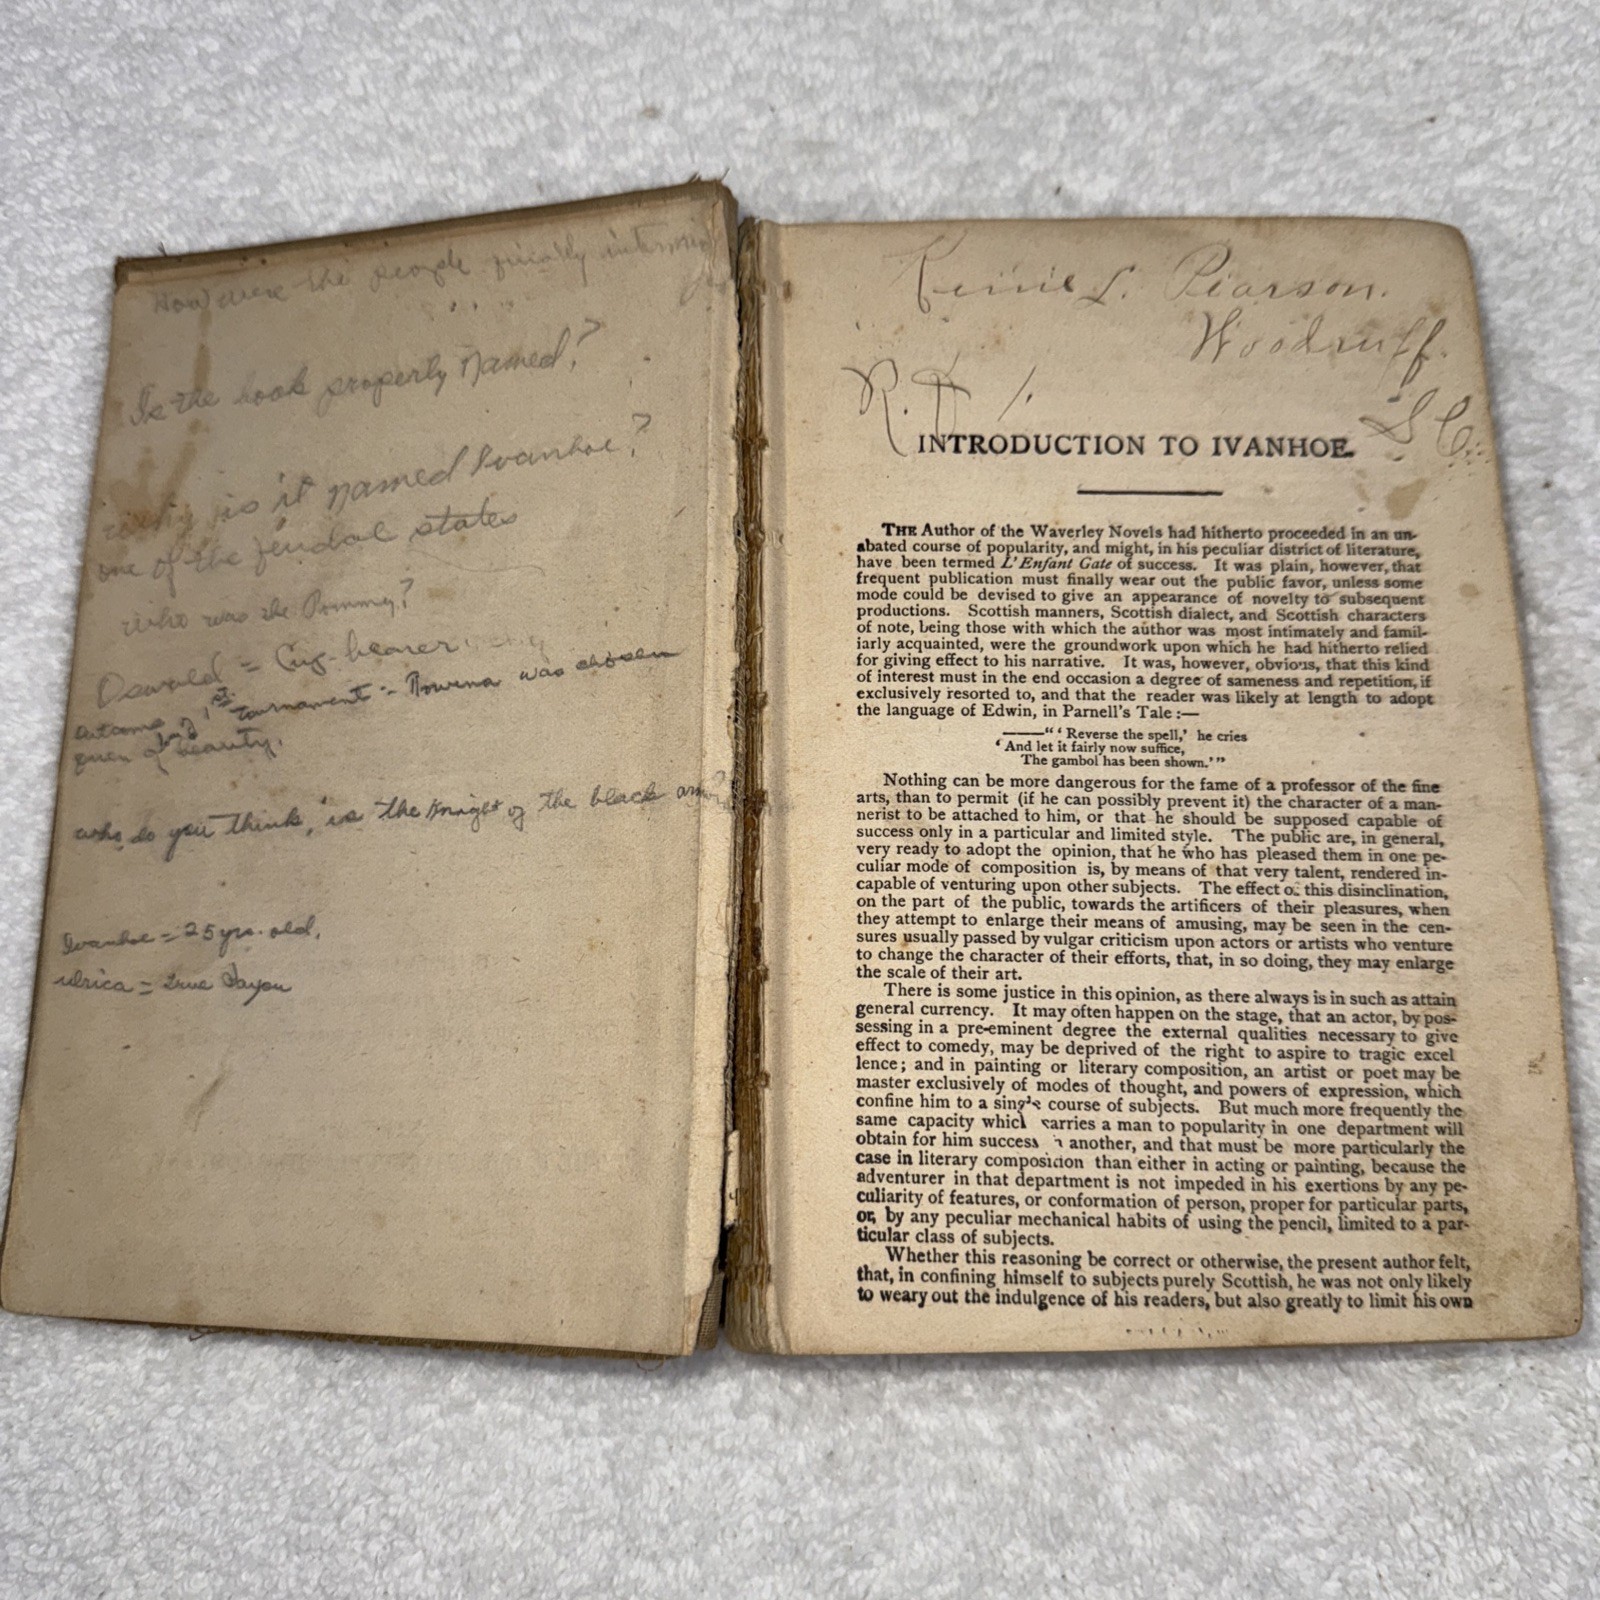 How were the people
Is the book properly named?
why is it named Ivanhoe?
one of the feudal states
who was the
Oswald = Cup-bearer
outcome of 1st tournament - Rowena was chosen
queen of love & beauty.
who, do you think, is the Knight of the black
Ivanhoe = 25 yrs. old.
ulrica = true
L. Pearson.
Woodruff.
R. D 1.
S C.
INTRODUCTION TO IVANHOE.
THE Author of the Waverley Novels had hitherto proceeded in an un-
abated course of popularity, and might, in his peculiar district of literature,
have been termed L'Enfant Gate of success. It was plain, however, that
frequent publication must finally wear out the public favor, unless some
mode could be devised to give an appearance of novelty to subsequent
productions. Scottish manners, Scottish dialect, and Scottish characters
of note, being those with which the author was most intimately and famil-
iarly acquainted, were the groundwork upon which he had hitherto relied
for giving effect to his narrative. It was, however, obvious, that this kind
of interest must in the end occasion a degree of sameness and repetition, if
exclusively resorted to, and that the reader was likely at length to adopt
the language of Edwin, in Parnell's Tale :—
——"‘ Reverse the spell,’ he cries
‘ And let it fairly now suffice,
The gambol has been shown.’"
Nothing can be more dangerous for the fame of a professor of the fine
arts, than to permit (if he can possibly prevent it) the character of a man-
nerist to be attached to him, or that he should be supposed capable of
success only in a particular and limited style. The public are, in general,
very ready to adopt the opinion, that he who has pleased them in one pe-
culiar mode of composition is, by means of that very talent, rendered in-
capable of venturing upon other subjects. The effect of this disinclination,
on the part of the public, towards the artificers of their pleasures, when
they attempt to enlarge their means of amusing, may be seen in the cen-
sures usually passed by vulgar criticism upon actors or artists who venture
to change the character of their efforts, that, in so doing, they may enlarge
the scale of their art.
There is some justice in this opinion, as there always is in such as attain
general currency. It may often happen on the stage, that an actor, by pos-
sessing in a pre-eminent degree the external qualities necessary to give
effect to comedy, may be deprived of the right to aspire to tragic excel
lence ; and in painting or literary composition, an artist or poet may be
master exclusively of modes of thought, and powers of expression, which
confine him to a single course of subjects. But much more frequently the
same capacity which carries a man to popularity in one department will
obtain for him success in another, and that must be more particularly the
case in literary composition than either in acting or painting, because the
adventurer in that department is not impeded in his exertions by any pe-
culiarity of features, or conformation of person, proper for particular parts,
or, by any peculiar mechanical habits of using the pencil, limited to a par-
ticular class of subjects.
Whether this reasoning be correct or otherwise, the present author felt,
that, in confining himself to subjects purely Scottish, he was not only likely
to weary out the indulgence of his readers, but also greatly to limit his own